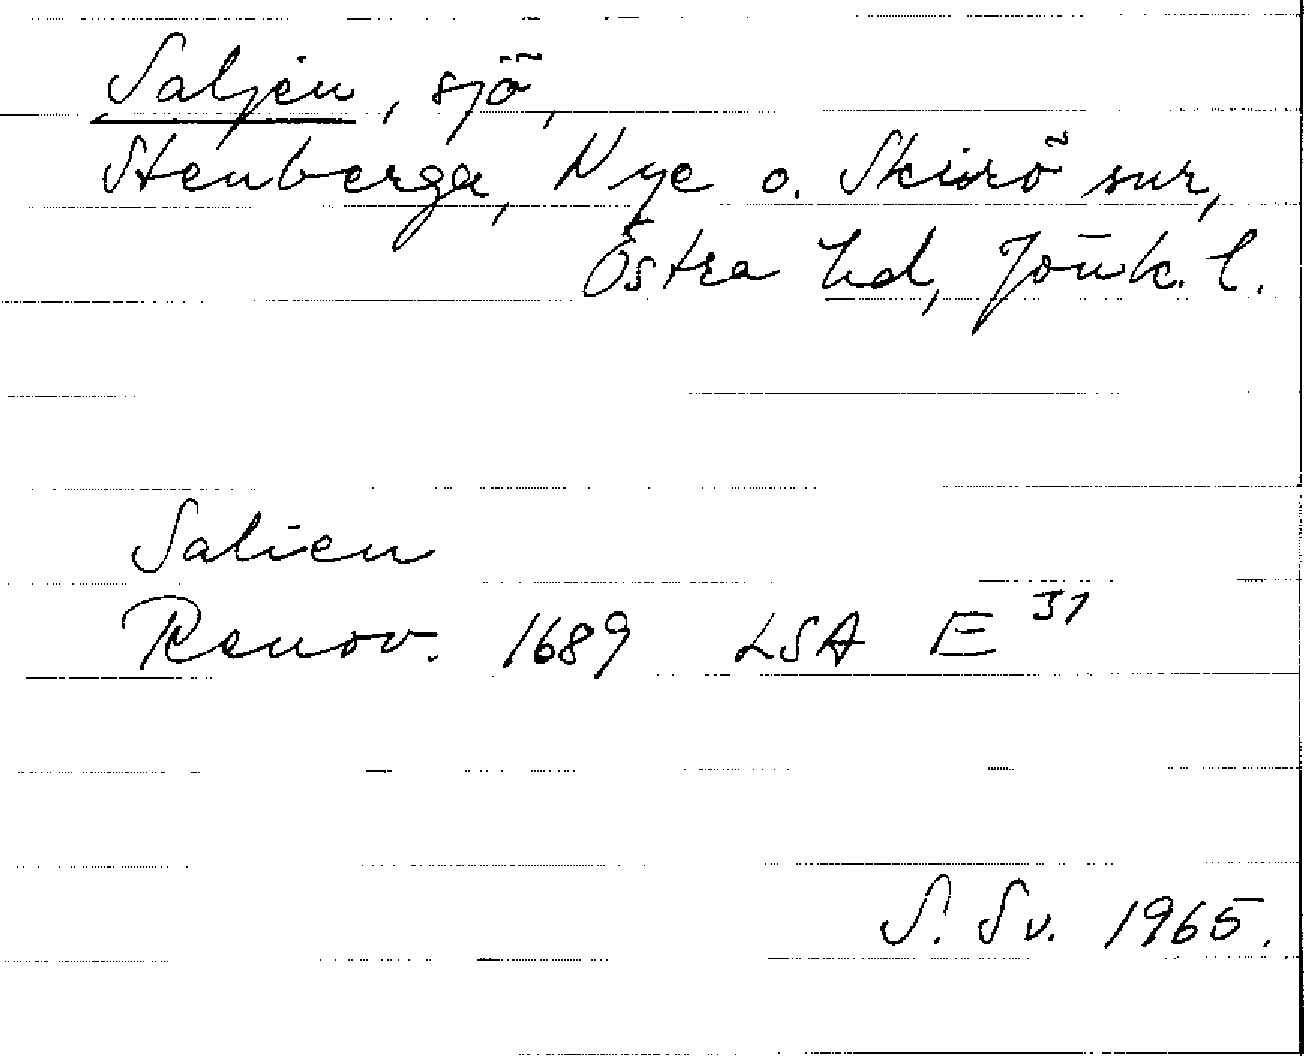 Saljen, sjö,
Stenberga, Nye o. Skirö snr,
Östra hd, Jönk. l.
Salien
Renov. 1689 LSA E 31
S. Sv. 1965.